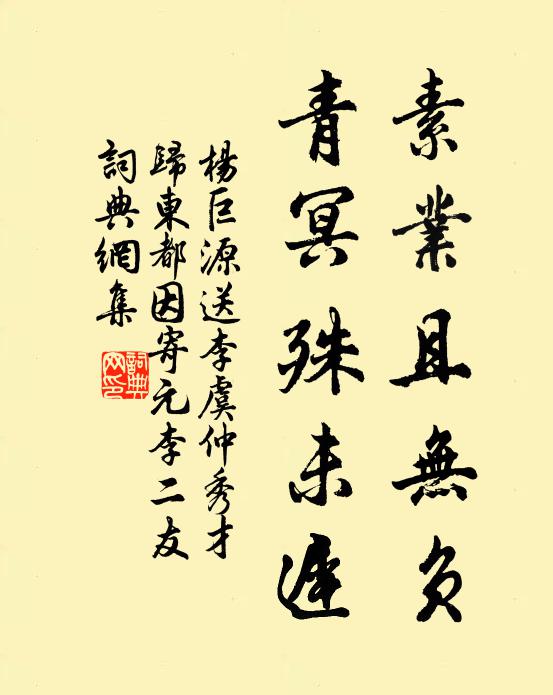 素業且無負
青冥殊未遲
楊巨源送李虞仲秀才
歸東都因寄元李二友
詞典網集
詞典
网印